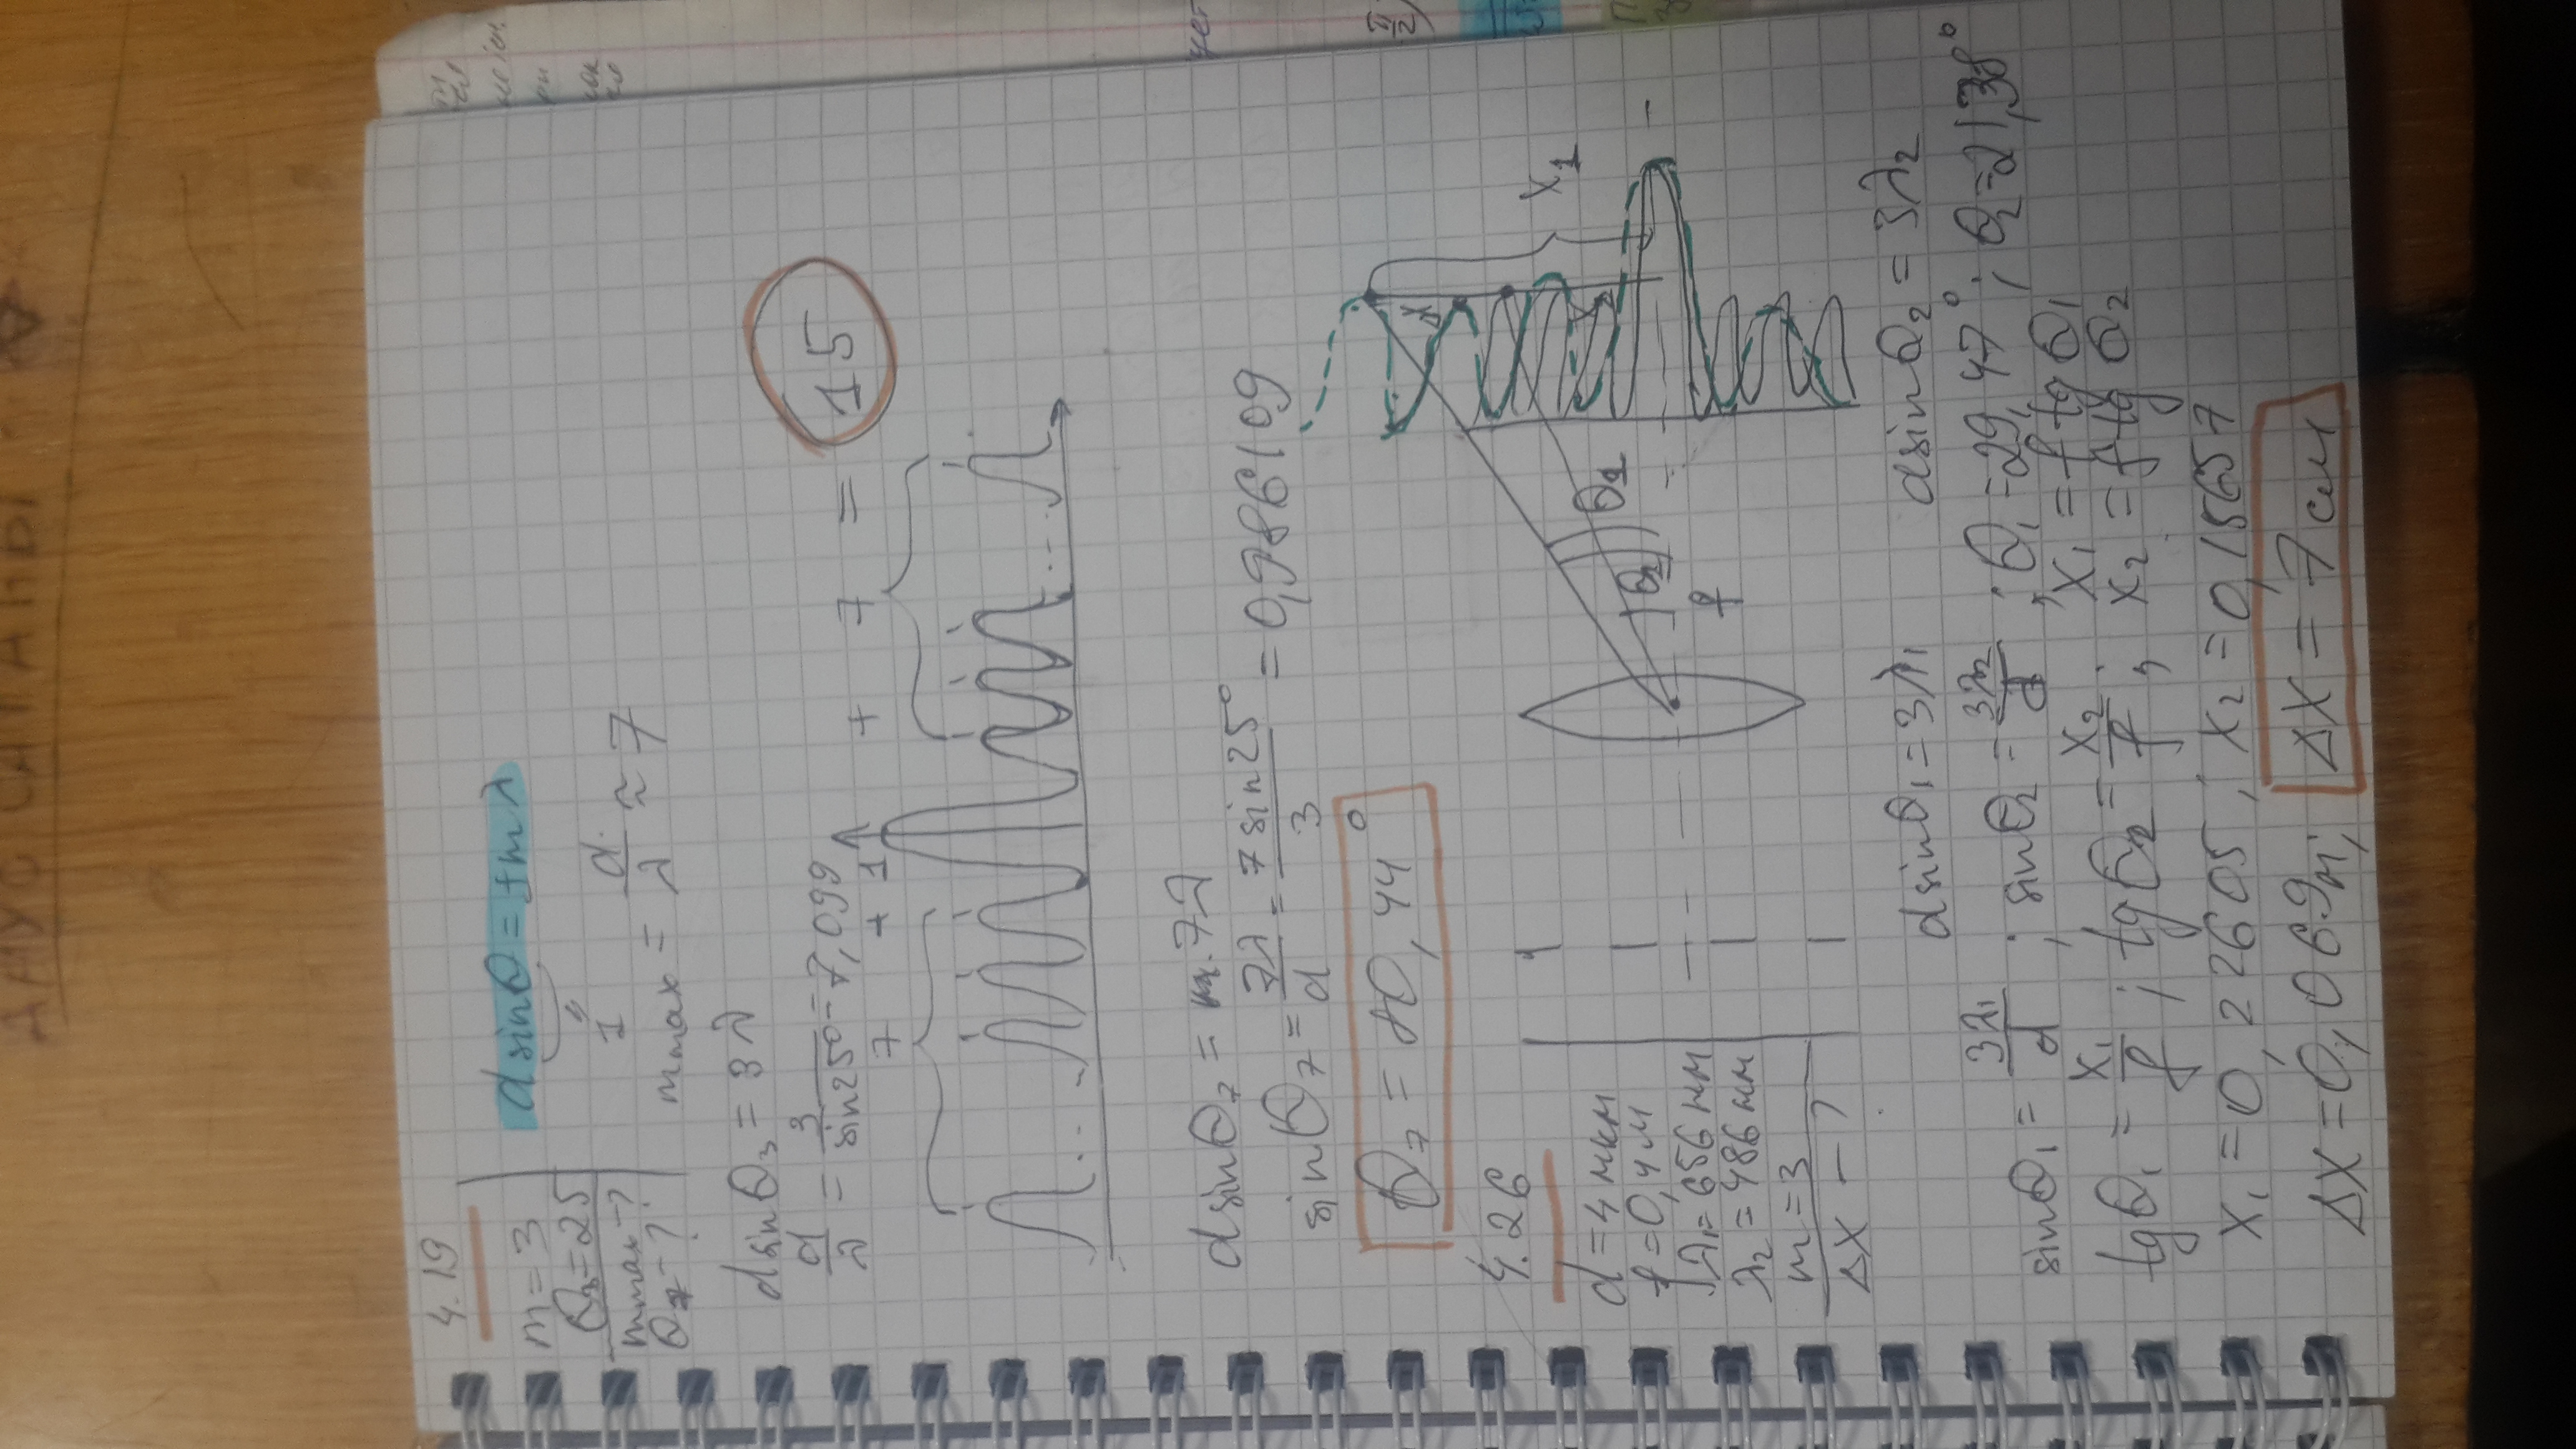 АНУС САТАНЫ
4.19
m = 3
Θ₃ = 25
m max - ?
Θ₇ - ?
d sinΘ = ±mλ
1
m max = d/λ ≈ 7
d sinΘ₃ = 3λ
d/λ = 3/sin25° = 7,099
7 + 1 + 7 = 15
d sinΘ₇ = 7λ
sinΘ₇ = 7λ/d = 7 sin25°/3 = 0,986109
Θ₇ = 80,44°
4.26
d = 4 мкм
f = 0,4 м
λ₁ = 656 нм
λ₂ = 486 нм
m = 3
Δx - ?
Δx
x₁
x₂
Θ₁
Θ₂
f
d sinΘ₁ = 3λ₁ d sinΘ₂ = 3λ₂
sinΘ₁ = 3λ₁/d ; sinΘ₂ = 3λ₂/d ; Θ₁ = 29,47° ; Θ₂ = 21,38°
tgΘ₁ = x₁/f ; tgΘ₂ = x₂/f ; x₁ = f tgΘ₁
x₂ = f tgΘ₂
x₁ = 0,22605 ; x₂ = 0,15657
Δx = 0,069м; Δx = 7 см